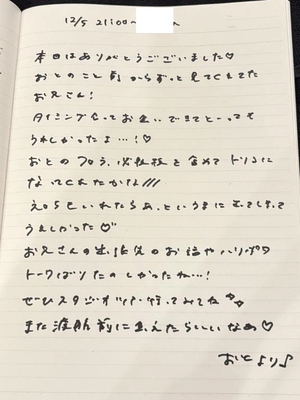 12/5 21:00〜 へ
本日はありがとうございました♡
おとのこと前からずっと見てくれてた
お兄さん!
タイミング合ってお会いできてとーっても
うれしかったよ…!♡
おとのフロフ、必殺技を含めてトリコに
なってくれたかな///
えろらしいれたらあっというまに
うれしかった♡
お兄さんの生活のお話やハリポタ
トークばりたのしかったね…!
ぜひスタジオツアー行ってみてね
また渡航前に会えたらいいなぁ♡
おとより♪